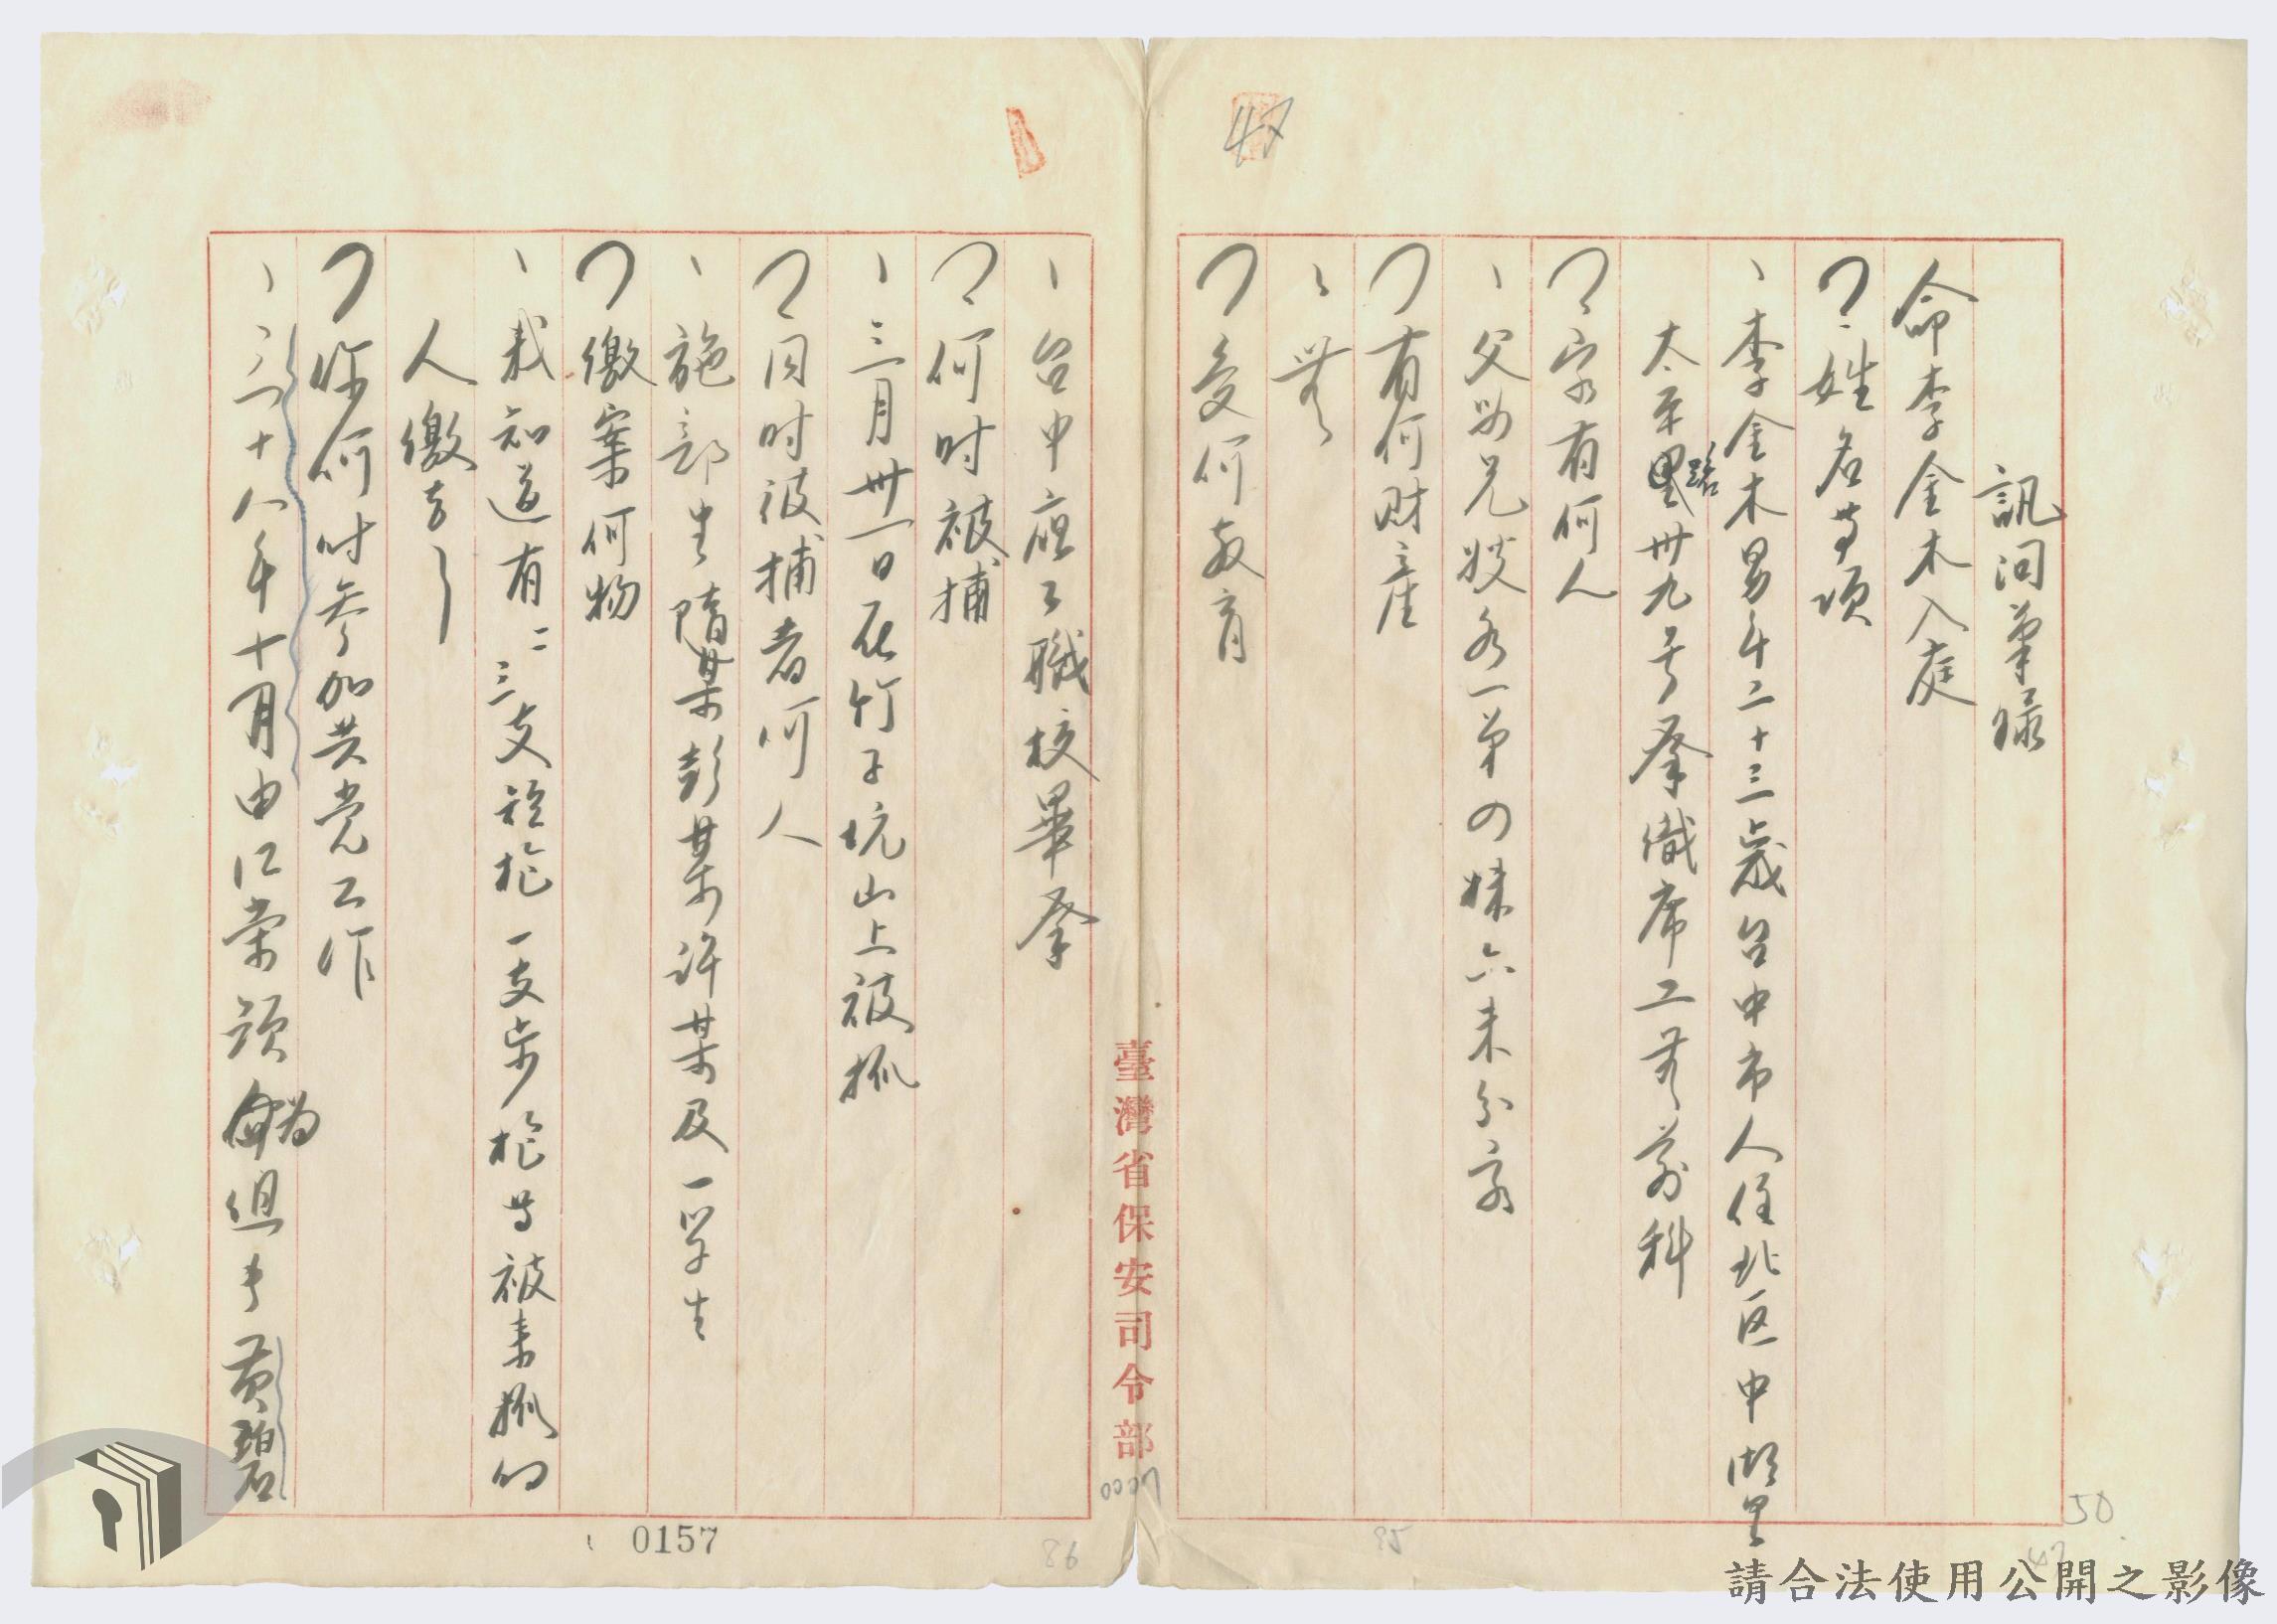 47
訊问筆录
命李金木入庭
？姓名等項
、李金木男年二十三歲台中市人住北区中湖里
太平路卅九号業織席工無前科
？家有何人
、父母兄嫂各一弟四妹六未分家
？有何財產
、無
？受何教育
、台中應工職校畢業
？何时被捕
、三月卅一日在竹子坑山上被抓
？同时被捕者何人
、施部生隋某彭某許某及一学生
？繳案何物
、我知道有二三支短枪一支步枪等被来抓的
人繳去了
？你何时参加共党工作
、三十八年十月由江榮顕為组长黄碧
臺灣省保安司令部
0007
0157
85
86
50
請合法使用公開之影像